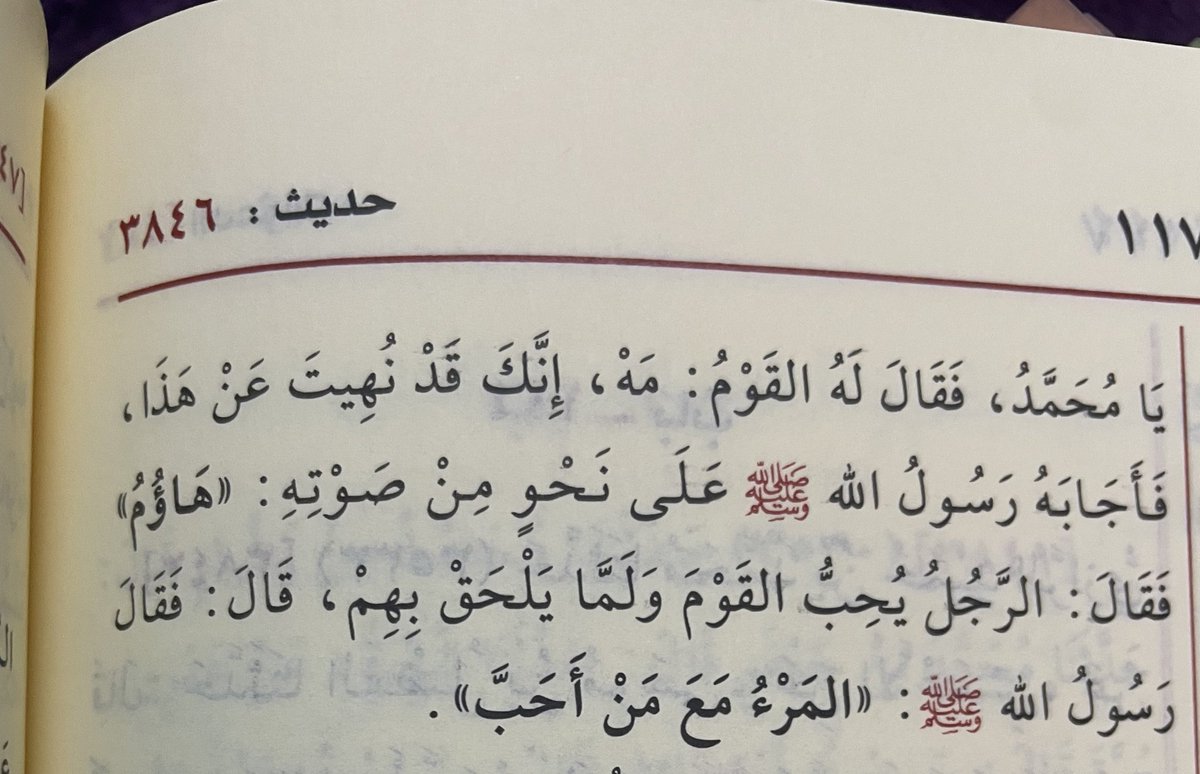 ١١٧
حديث : ٣٨٤٦
يَا مُحَمَّدُ، فَقَالَ لَهُ القَوْمُ: مَهْ، إِنَّكَ قَدْ نُهِيتَ عَنْ هَذَا،
فَأَجَابَهُ رَسُولُ الله ﷺ عَلَى نَحْوٍ مِنْ صَوْتِهِ: «هَاؤُمُ»
فَقَالَ: الرَّجُلُ يُحِبُّ القَوْمَ وَلَمَّا يَلْحَقْ بِهِمْ، قَالَ: فَقَالَ
رَسُولُ الله ﷺ: «المَرْءُ مَعَ مَنْ أَحَبَّ».